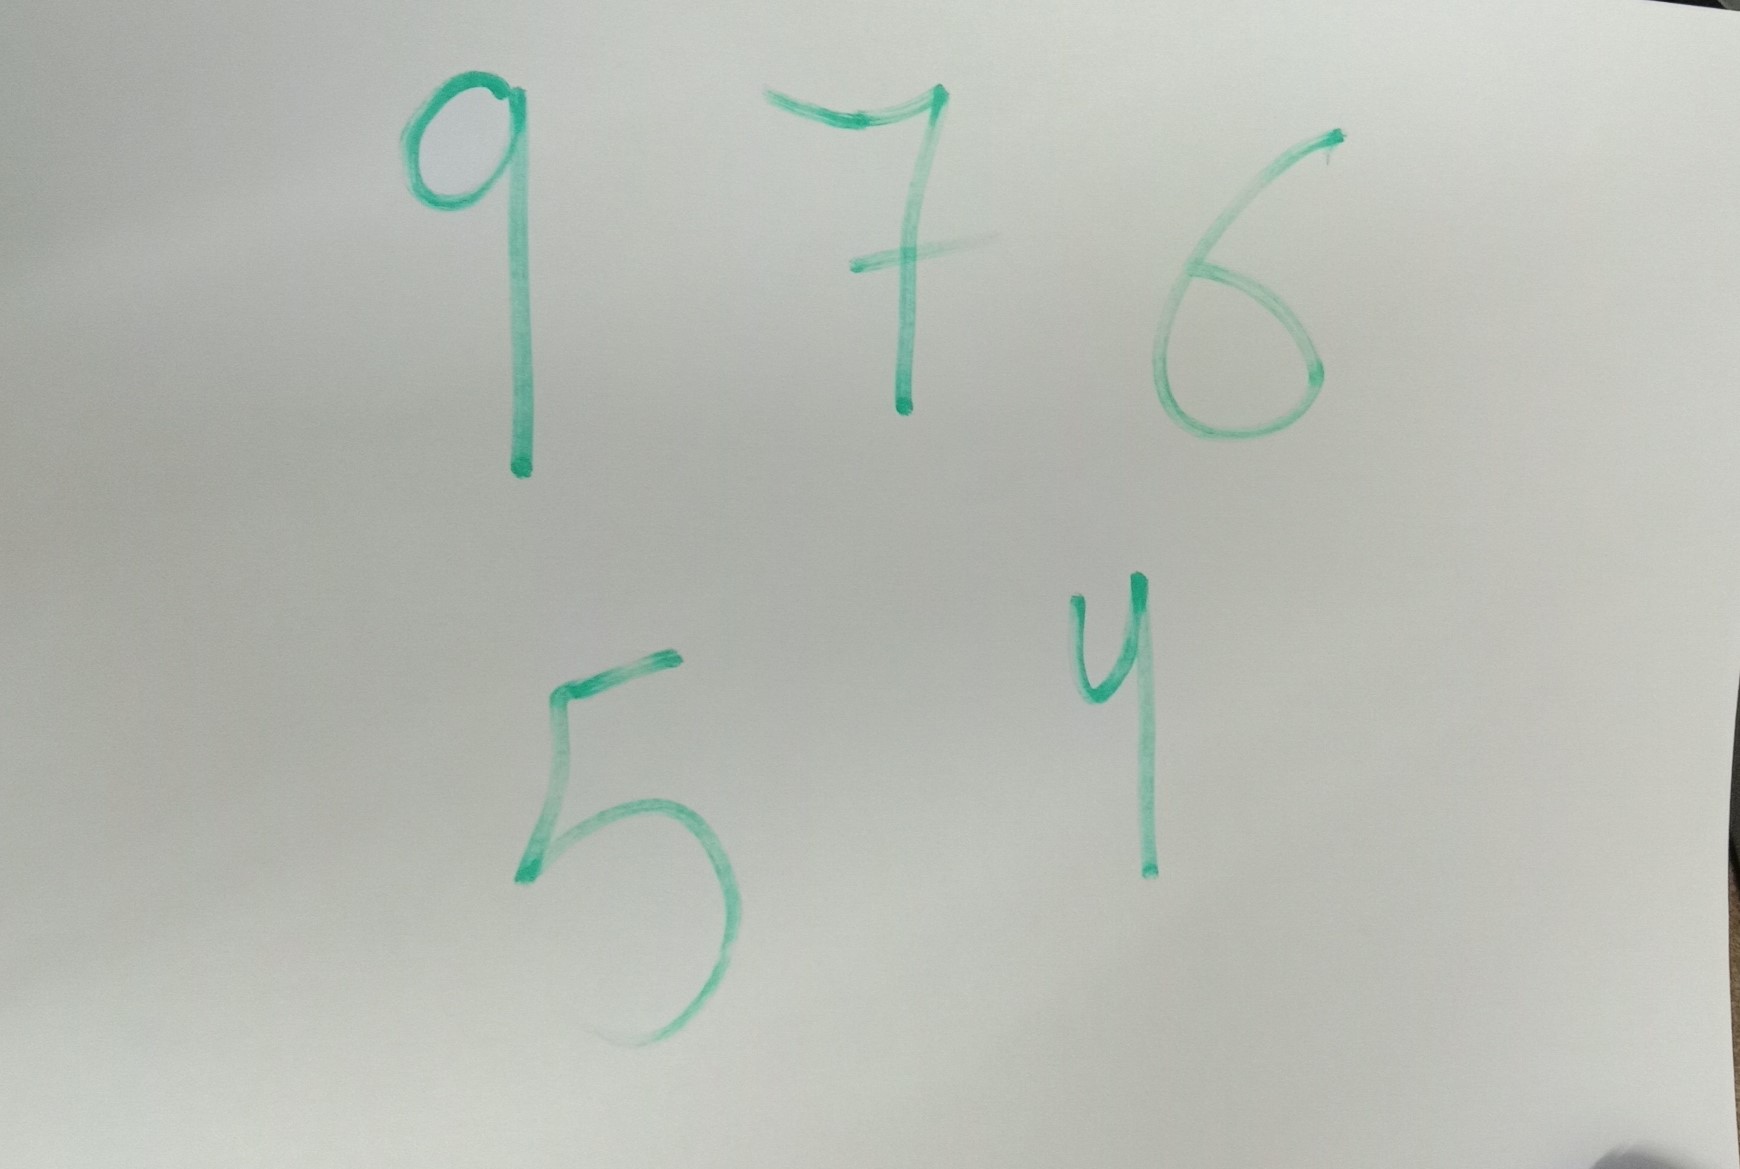 9 7 6
5 4